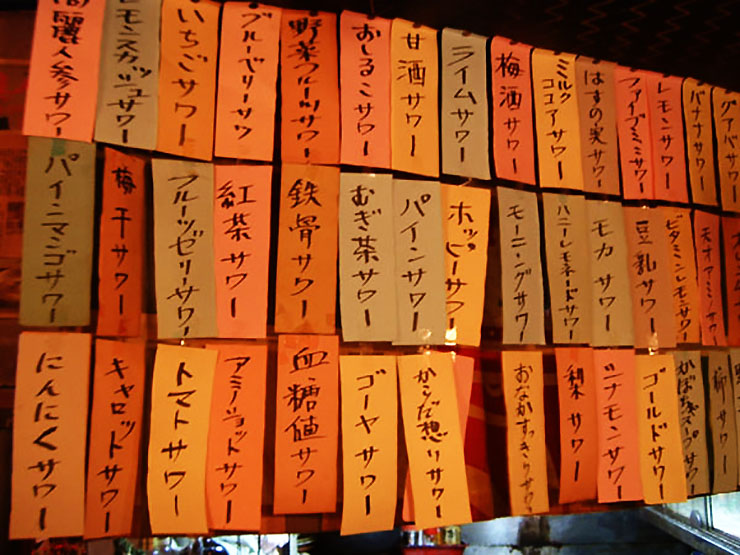 高麗人参サワー
レモンスカッシュサワー
いちごサワー
ブルーベリーサワ
野菜フルーツサワー
おしるこサワー
甘酒サワー
ライムサワー
梅酒サワー
ミルクココアサワー
はすの実サワー
ファイブミニサワー
レモンサワー
バナナサワー
グアバサワー
パインマンゴサワー
梅干サワー
フルーツゼリーサワー
紅茶サワー
鉄骨サワー
むぎ茶サワー
パインサワー
ホッピーサワー
モーニングサワー
ハニーレモネードサワー
モカサワー
豆乳サワー
ビタミンレモンサワー
天オアミノサワー
にんにくサワー
キャロットサワー
トマトサワー
アミノショットサワー
血糖値サワー
ゴーヤサワー
からだ想リサワー
おなかすっきりサワー
梨サワー
シナモンサワー
ゴールドサワー
かぼちゃスープサワー
柳サワー